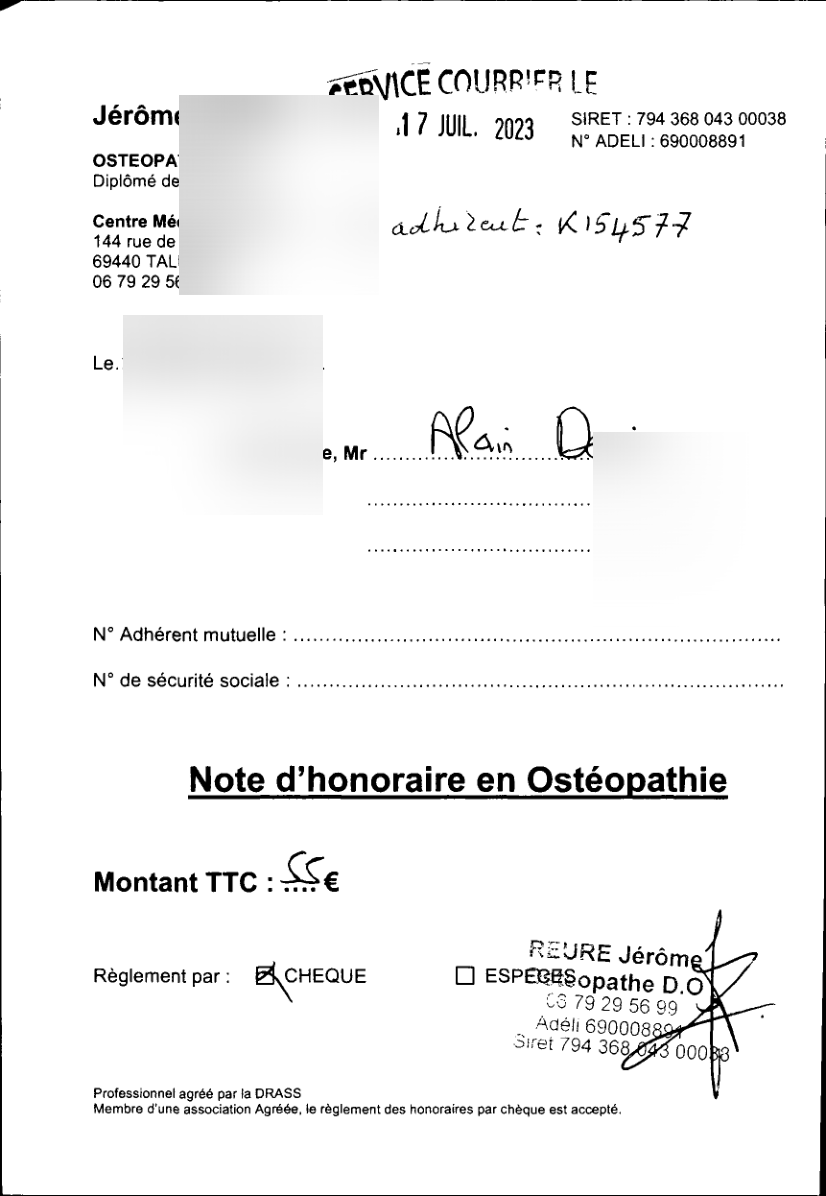 SERVICE COURRIER LE
17 JUIL. 2023
Jérôme
SIRET : 794 368 043 00038
N° ADELI : 690008891
OSTEOPA
Diplômé de
Centre Mé
144 rue de
69440 TAL
06 79 29 56
adhérent : K154577
Le.
e, Mr Alain D
N° Adhérent mutuelle :
N° de sécurité sociale :
Note d'honoraire en Ostéopathie
Montant TTC : 55 €
Règlement par : CHEQUE ESPECES
REURE Jérôme
Ostéopathe D.O
06 79 29 56 99
Adéli 690008891
Siret 794 368 043 00038
Professionnel agréé par la DRASS
Membre d'une association Agréée, le règlement des honoraires par chèque est accepté.